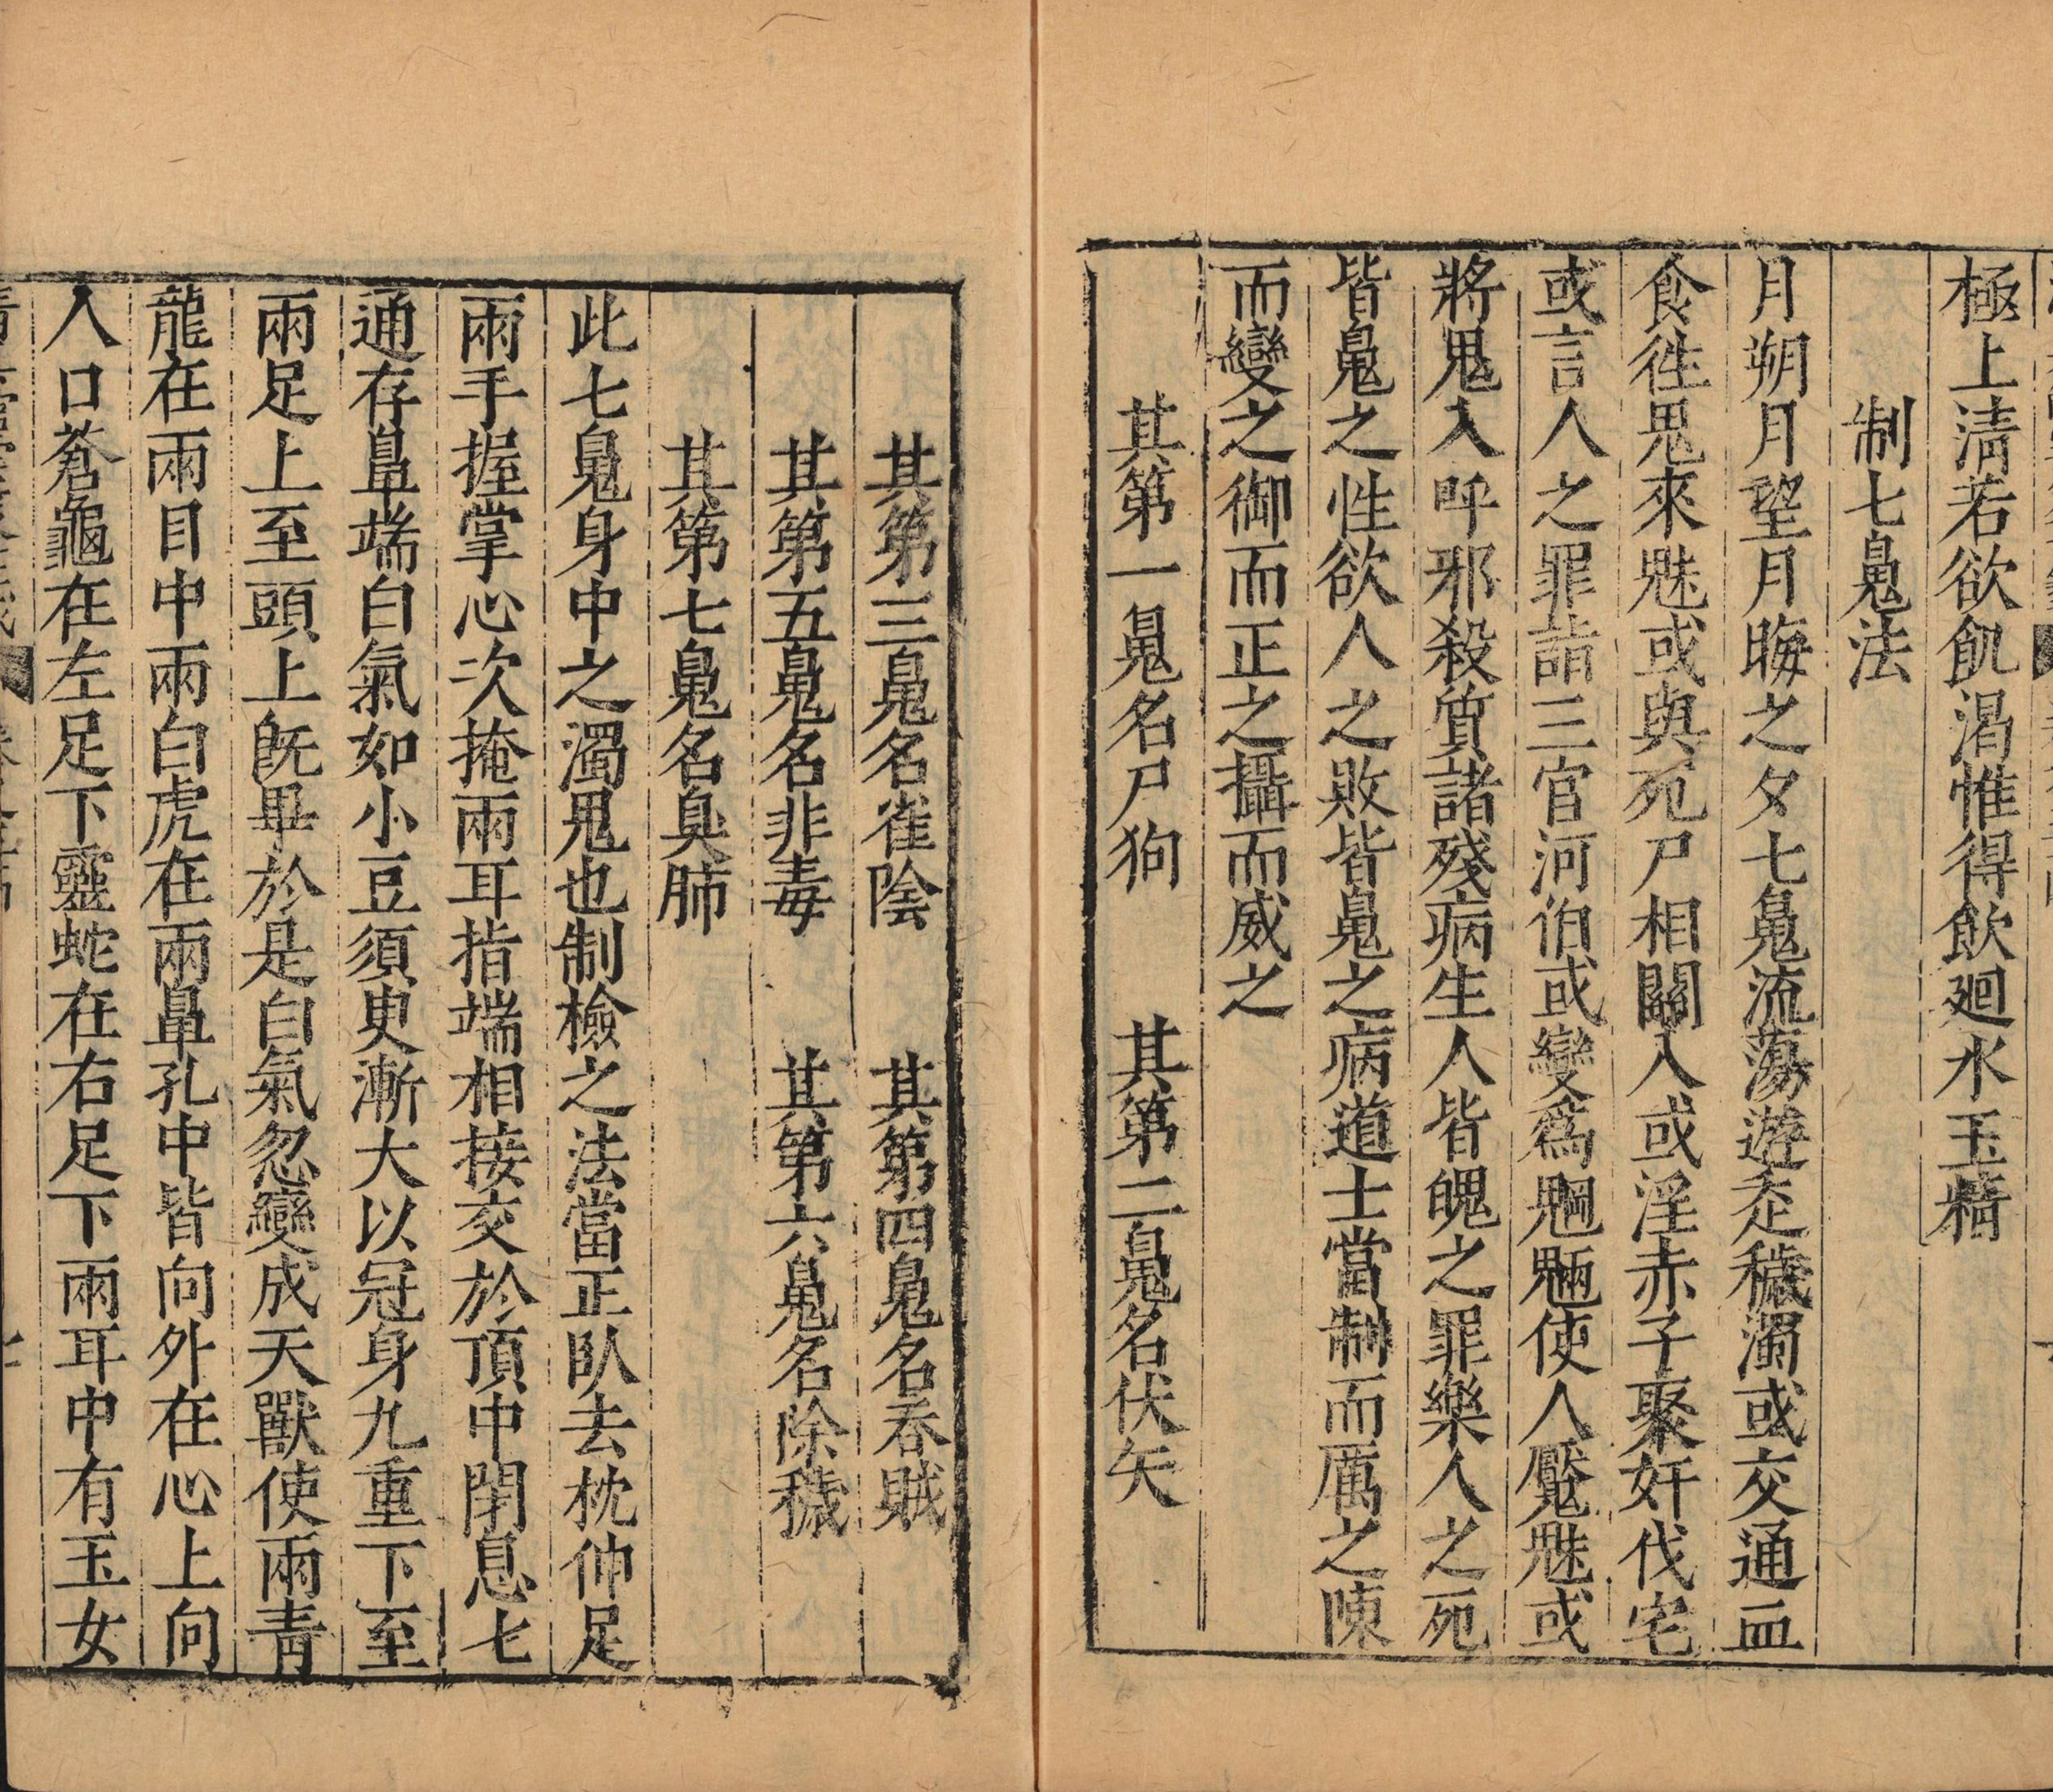 極上清若欲飢渴惟得飲廻水玉精
制七鬽法
月朔月望月晦之夕七鬽流蕩遊走穢濁或交通血
食徃鬼來魅或與死尸相關入或淫赤子聚奸伐宅
或言人之罪詣三官河伯或變爲魍魎使人魘魅或
將鬼入呼邪殺質諸殘病生人皆魄之罪樂人之死
皆鬽之性欲人之敗皆鬽之病道士當制而厲之陳
而變之御而正之攝而威之
其第一鬽名尸狗　其第二鬽名伏矢
其第三鬽名雀陰　其第四鬽名吞賊
其第五鬽名非毒　其第六鬽名除穢
其第七鬽名臭肺
此七鬽身中之濁鬼也制檢之法當正臥去枕伸足
兩手握掌心次掩兩耳指端相接交於頂中閉息七
通存鼻端白氣如小豆須臾漸大以冠身九重下至
兩足上至頭上旣畢於是白氣忽變成天獸使兩青
龍在兩目中兩白虎在兩鼻孔中皆向外在心上向
人口蒼龜在左足下靈蛇在右足下兩耳中有玉女